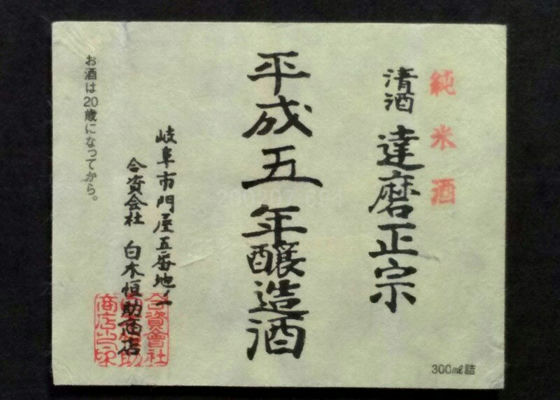 純米酒
清酒 達磨正宗
平成五年醸造酒
岐阜市門屋五番地ノ一
合資会社 白木恒助商店
お酒は20歳になってから。
300㎖詰